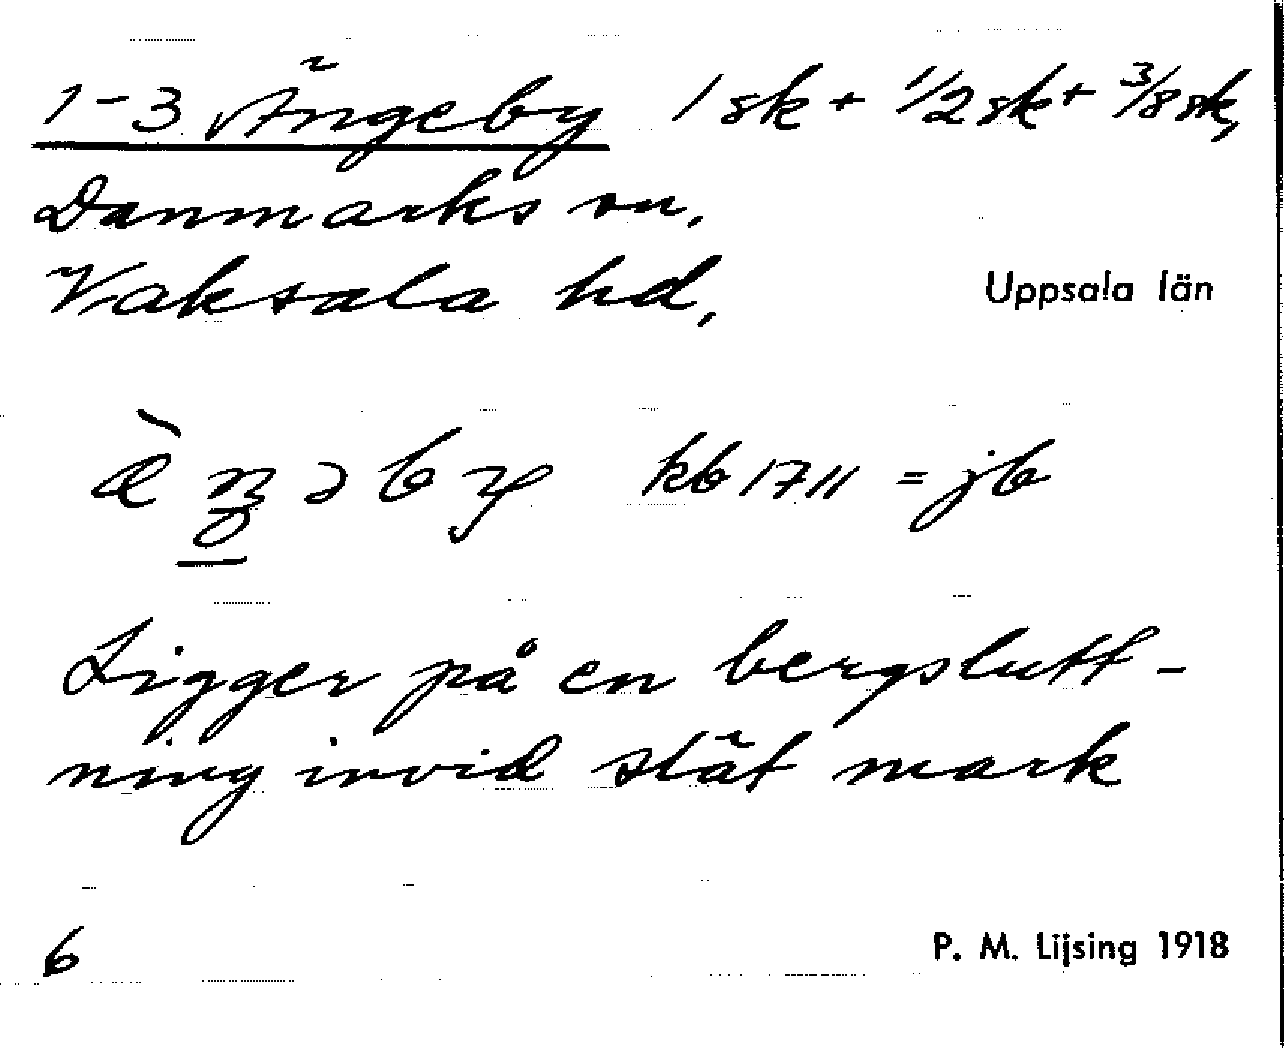 1-3 Ängeby 1 sk + 1/2 sk + 3/8 sk,
Danmarks sn,
Vaksala hd,
Uppsala län
kb 1711 = jb
Ligger på en bergslutt-
ning invid slät mark
6
P. M. Lijsing 1918